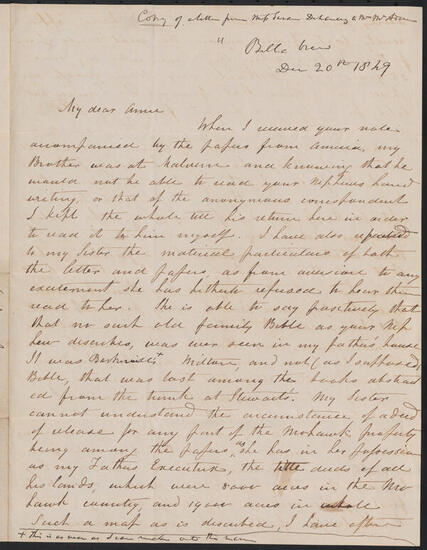 Copy of a letter from Miss Susan Delancey to Mrs Mc Adam
"
Bella View
Dec 20th 1849
My dear Annie
When I received your note
accompanied by the papers from America, my
Brother was at Malvern and knowing that he
would not be able to read your Nephews hand
writing, or that of the anonymous correspondent
I kept the whole till his return here in order
to read it to him myself. I have also repeated
to my Sister the material particulars of both
the letter and papers, as from aversion to any
excitement she has hitherto refused to hear them
read to her. She is able to say positively that
that no such old family Bible as your Nep
hew describes, was ever seen in my father's house
It was + Milton, and not (as I supposed)
Bible, that was last among the books abstract
ed from the trunk at Stewarts. My Sister
cannot understand the circumstance of a deed
of release for any part of the Mohawk property
being among the papers, as she has in her possession
as my Father's Executrix, the title deeds of all
his lands, which were 8000 acres in the Mo
hawk country, and 19000 acres in whole
Such a map as is described, I have often
+ this is as near as I can make out the name